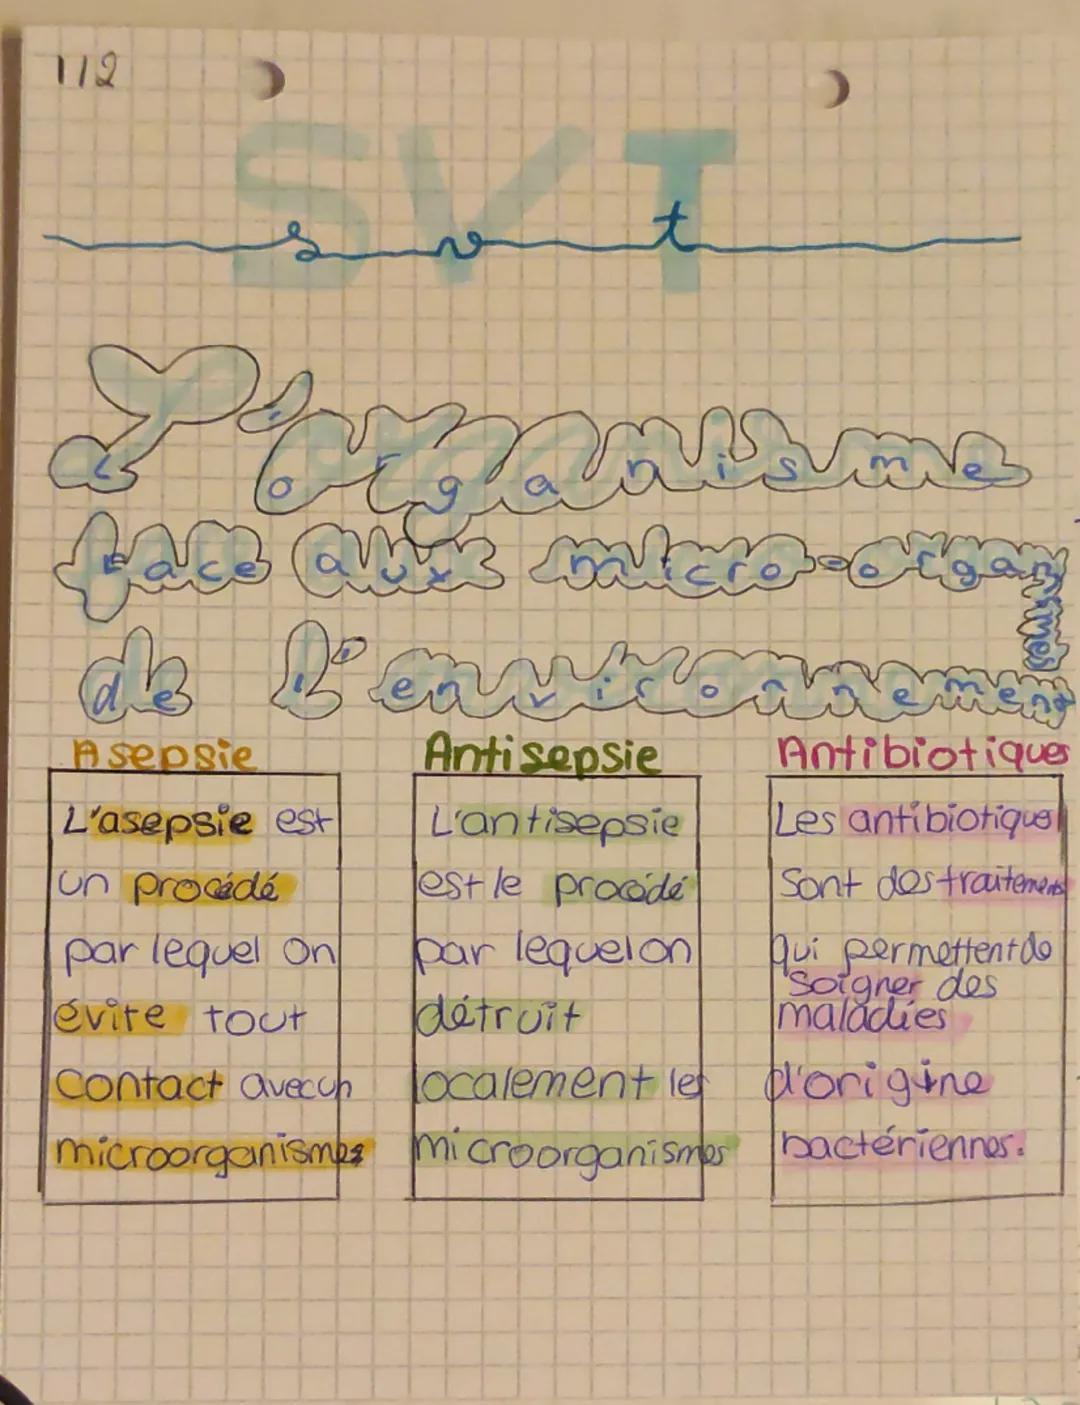 112
SVT
svt
L'organisme
face aux micro-organismes
de l'environnement
Asepsie
L'asepsie est
un procédé
par lequel on
évite tout
contact avec un
microorganismes
Antisepsie
L'antisepsie
est le procédé
par lequel on
détruit
localement les
microorganismes
Antibiotiques
Les antibiotique
sont des traitements
qui permettent de
soigner des
maladies
d'origine
bactériennes.